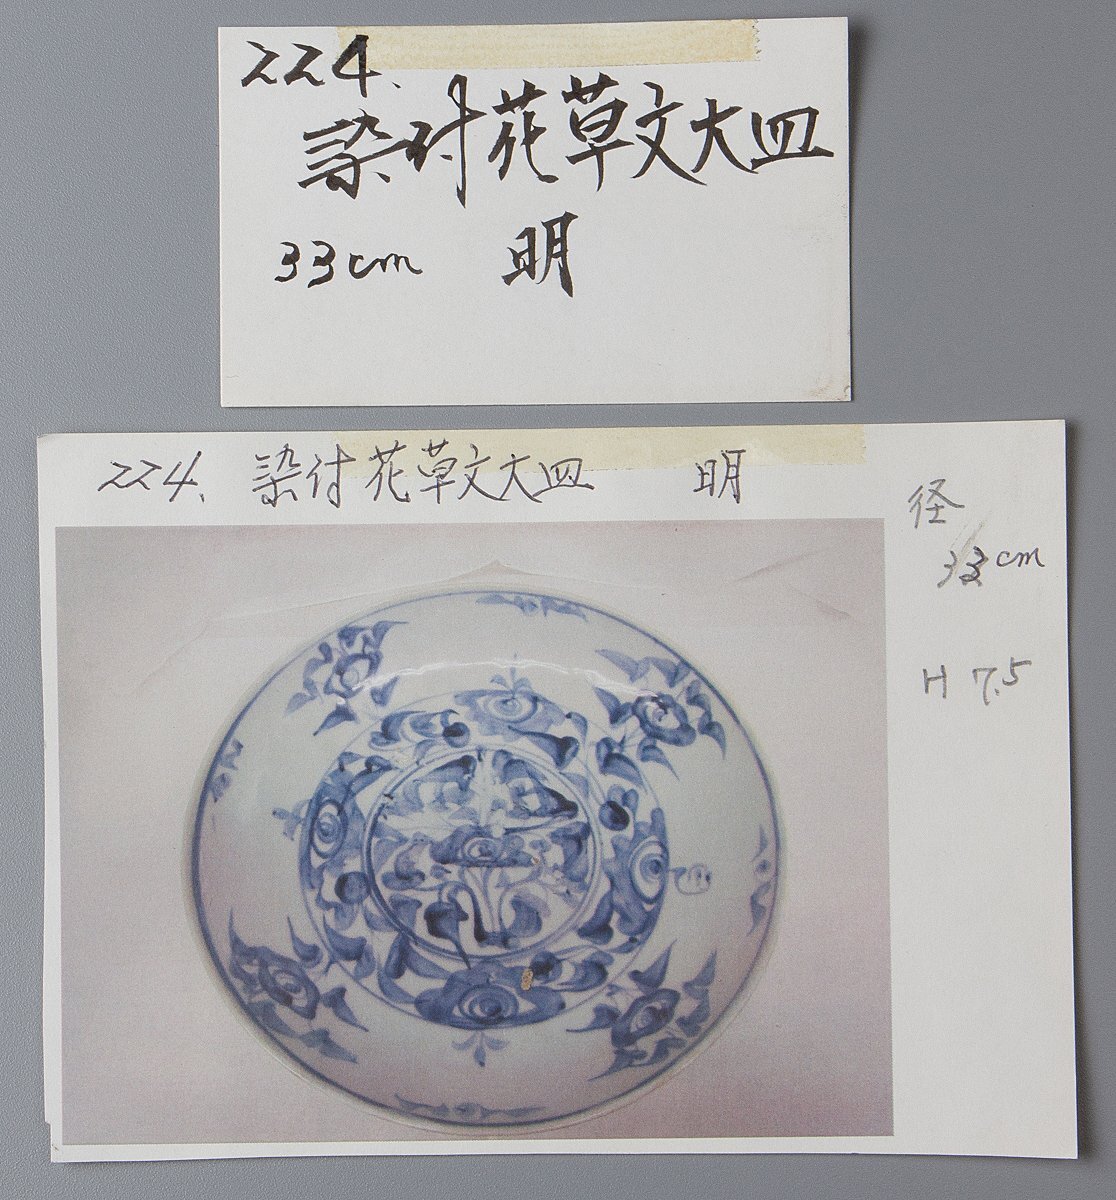 224.
染付花草文大皿
33cm 明
224. 染付花草文大皿 明
径
33cm
H 7.5